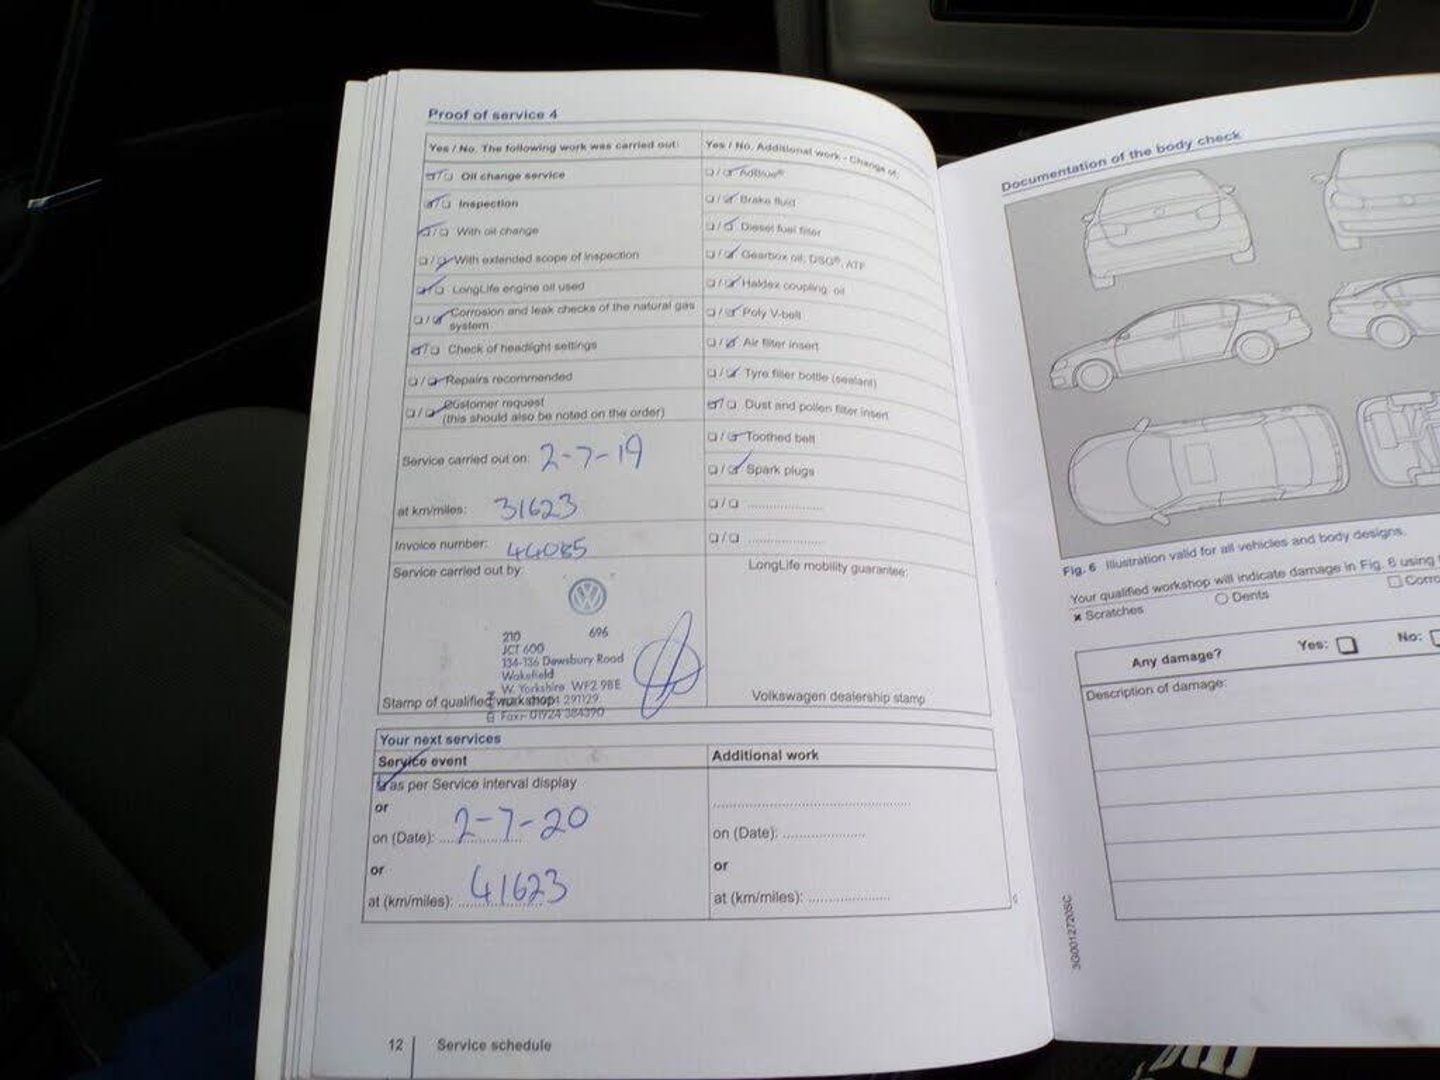 Proof of service 4
Yes / No. The following work was carried out:
☑/☐ Oil change service
☑/☐ Inspection
☑/☐ With oil change
☐/☑ With extended scope of inspection
☑/☐ LongLife engine oil used
☐/☑ Corrosion and leak checks of the natural gas
system
☑/☐ Check of headlight settings
☐/☑ Repairs recommended
☐/☑ Customer request
(this should also be noted on the order)
Service carried out on: 2-7-19
at km/miles: 31623
Invoice number: 44085
Service carried out by:
210 696
JCT 600
134-136 Dewsbury Road
Wakefield
W. Yorkshire WF2 9BE
291129
Stamp of qualified workshop:
Fax: 01924 384390
Yes / No. Additional work - Change of:
☐/☑ AdBlue®
☐/☑ Brake fluid
☐/☑ Diesel fuel filter
☐/☑ Gearbox oil: DSG®, ATF
☐/☑ Haldex coupling: oil
☐/☑ Poly V-belt
☐/☑ Air filter insert
☐/☑ Tyre filler bottle (sealant)
☑/☐ Dust and pollen filter insert
☐/☑ Toothed belt
☐/☑ Spark plugs
☐/☐ ......................
☐/☐ ......................
LongLife mobility guarantee:
Volkswagen dealership stamp
Your next services
Service event
☑ as per Service interval display
or
on (Date): 2-7-20
or
at (km/miles): 41623
Additional work
on (Date): ......................
or
at (km/miles): ......................
12 Service schedule
Documentation of the body check
Fig. 6 Illustration valid for all vehicles and body designs.
Your qualified workshop will indicate damage in Fig. 6 using
✖ Scratches ○ Dents ☐
Any damage? Yes: ☐ No: ☐
Description of damage:
3G0012720SIC